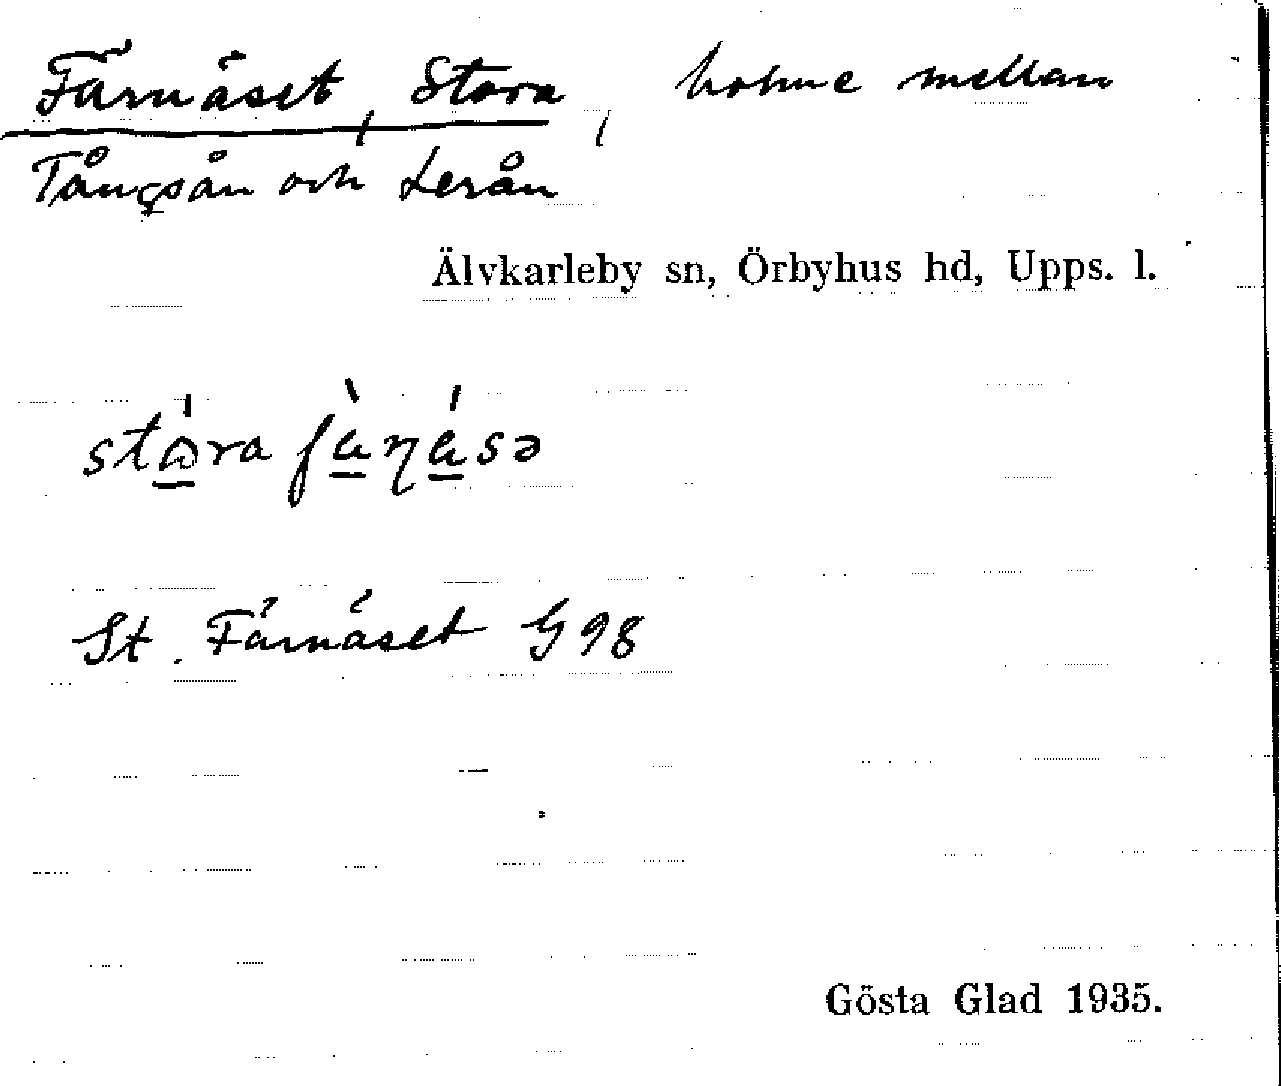 Färnäset, Stora, holme mellan
Tångsån och Lerån
Älvkarleby sn, Örbyhus hd, Upps. l.
St. Färnäset G 98
Gösta Glad 1935.